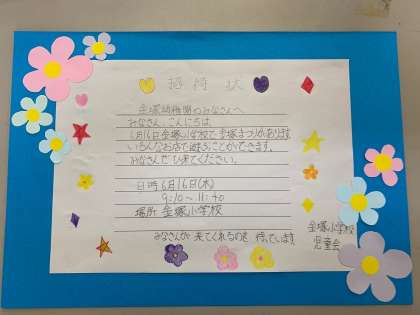 招待状
金塚幼稚園のみなさんへ
みなさん、こんにちは。
6月16日金塚小学校で金塚まつりがあります。
いろんなお店で遊ぶことができます。
みなさんぜひ来てください。
日時 6月16日(木)
9:10〜11:40
場所 金塚小学校
みなさんが来てくれるのを待っています。
金塚小学校
児童会